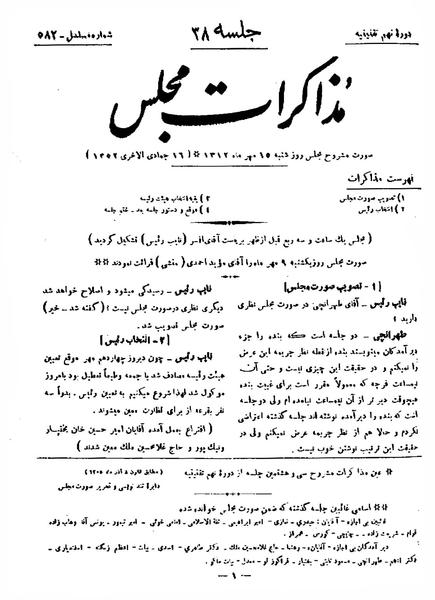 دورهٔ نهم تقنینیه
جلسه ۳۸
شماره مسلسل - ۵۸۲
مذاکرات مجلس
صورت مشروح مجلس روز شنبه ۱۵ مهر ماه ۱۳۱۲ * (۱۶ جمادی الاخری ۱۳۵۲)
فهرست مذاکرات
۱) تصویب صورت مجلس
۲) انتخاب رئیس
۳) بقیه انتخاب هیئت رئیسه
۴) موقع و دستور جلسه بعد - ختم جلسه
(مجلس یك ساعت و سه ربع قبل از ظهر بریاست آقای افسر (نایب رئیس) تشکیل گردید)
صورت مجلس روز یکشنبه ۹ مهر ماه را آقای مؤید احمدی (منشی) قرائت نمودند **
[۱ - تصویب صورت مجلس]
نایب رئیس - آقای طهرانچی در صورت مجلس نظری
دارید؟
طهرانچی - دو جلسه است که بنده را جزء
دیرآمدگان مینویسند بنده از نقطه نظر جریمه این عرض
را نمیکنم و در حقیقت این چیزی نیست و حتی آن
نیمساعت فرجه که معمولاً مقرر است برای غیبت بنده
هیچوقت دیرتر از آن نیمساعت نیامده ام ولی دو جلسه
است که بنده را دیرآمده نوشته اند جلسه گذشته اعتراضی
نکردم و حالا هم از نظر جریمه عرض نمیکنم ولی در
حقیقت این ترتیب نوشتن خوب نیست.
نایب رئیس - رسیدگی میشود و اصلاح خواهد شد
دیگری نظری در صورت مجلس نیست؟ (گفته شد - خیر)
صورت مجلس تصویب شد.
[۲ - انتخاب رئیس]
نایب رئیس - چون دیروز چهاردهم مهر موقع تعیین
هیئت رئیسه مصادف شد با جمعه و طبعاً تعطیل بود بامروز
موکول شد لهذا شروع میکنیم به تعیین رئیس. بدواً سه
نفر بقرعه از برای نظارت معین میشوند.
(اقتراع بعمل آمده آقایان امیر حسین خان بختیار
ونیك پور و حاج غلامحسین ملك معین شدند)
** عین مذاکرات مشروح سی و هشتمین جلسه از دورهٔ نهم تقنینیه
دایرهٔ تند نویسی و تحریر صورت مجلس
** اسامی غائبین جلسه گذشته که ضمن صورت مجلس خوانده شده
- ۱ -